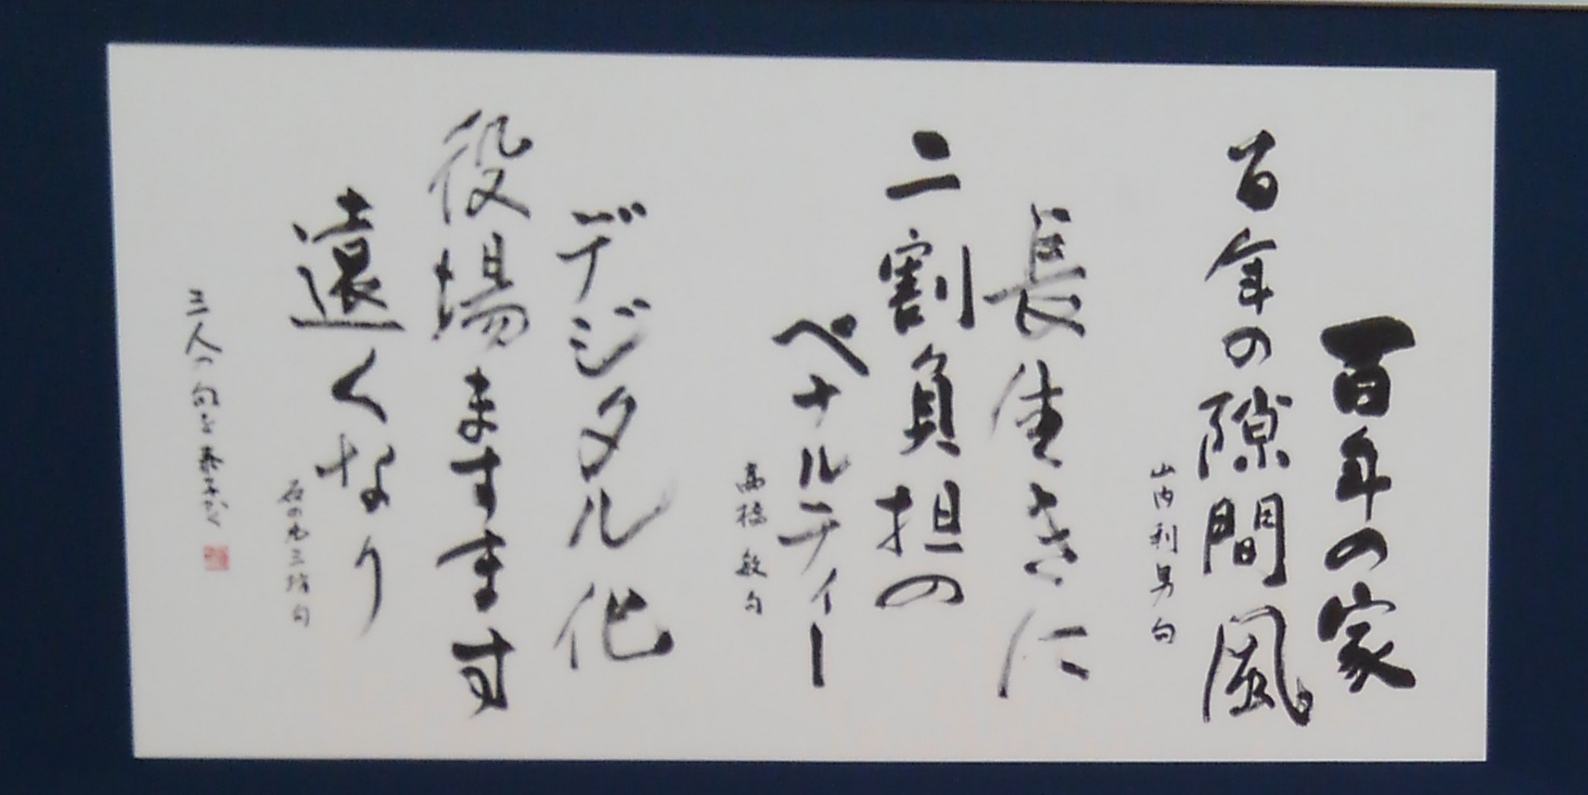 百年の家
百年の隙間風
山内利男句
長生きに
二割負担の
ペナルティー
高橋敏句
デジタル化
役場ますます
遠くなり
三人の句